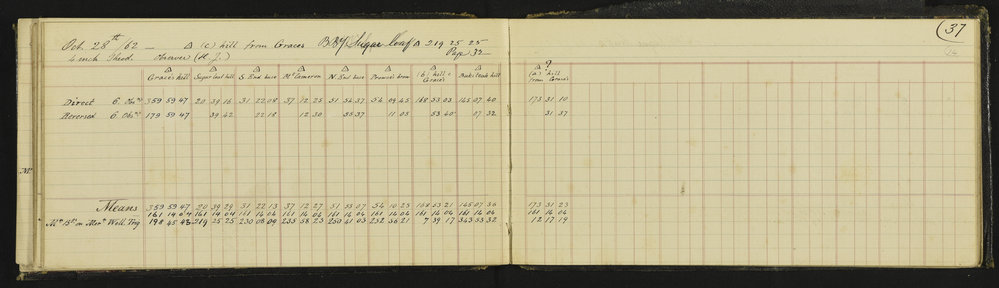 37
Oct. 28th /62 — △ (c) hill from Graces Sugar loaf △ 219 25 25
Page 32
4 inch Theod. Observer (H. J.)
△ △ △ △ △ △ △ △ △ ?
Grace's hill Sugar loaf hill S. End base Mt Cameron N. End base (b) hill Grace's (a) hill from Grace's
Direct 6. 359 59 47 20 39 16 31 22 08 37 12 25 51 54 37 54 09 45 168 53 03 145 07 40 173 31 10
Reversed 6. 179 59 47 39 42 22 18 12 30 55 37 11 05 53 40 07 32 31 37
Means 359 59 47 20 39 29 31 22 13 37 12 27 51 55 07 54 10 25 168 53 21 145 07 36 173 31 23
161 14 04 161 14 04 161 14 04 161 14 04 161 14 04 161 14 04 161 14 04 161 14 04
on Mern Well. Trig 219 25 25 230 08 09 235 58 23 250 41 03 252 56 21 7 39 17 343 53 32 12 17 19